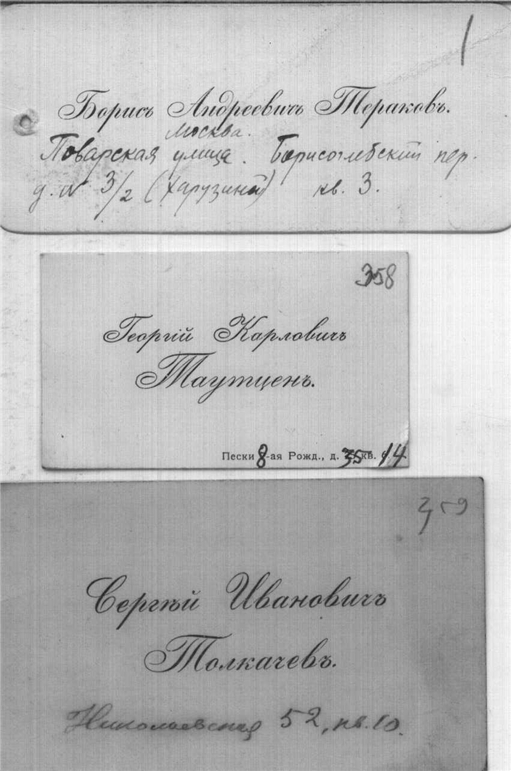 Борисъ Андреевичъ Тераковъ.
Москва.
Поварская улица. Борисоглебский пер.
д. № 3/2 (Харузиной) кв. 3.
358
Георгій Карловичъ
Таутценъ.
Пески 8-ая Рожд., д. 35 кв. 14
359
Сергѣй Ивановичъ
Толкачевъ.
Николаевская 52, кв. 10.